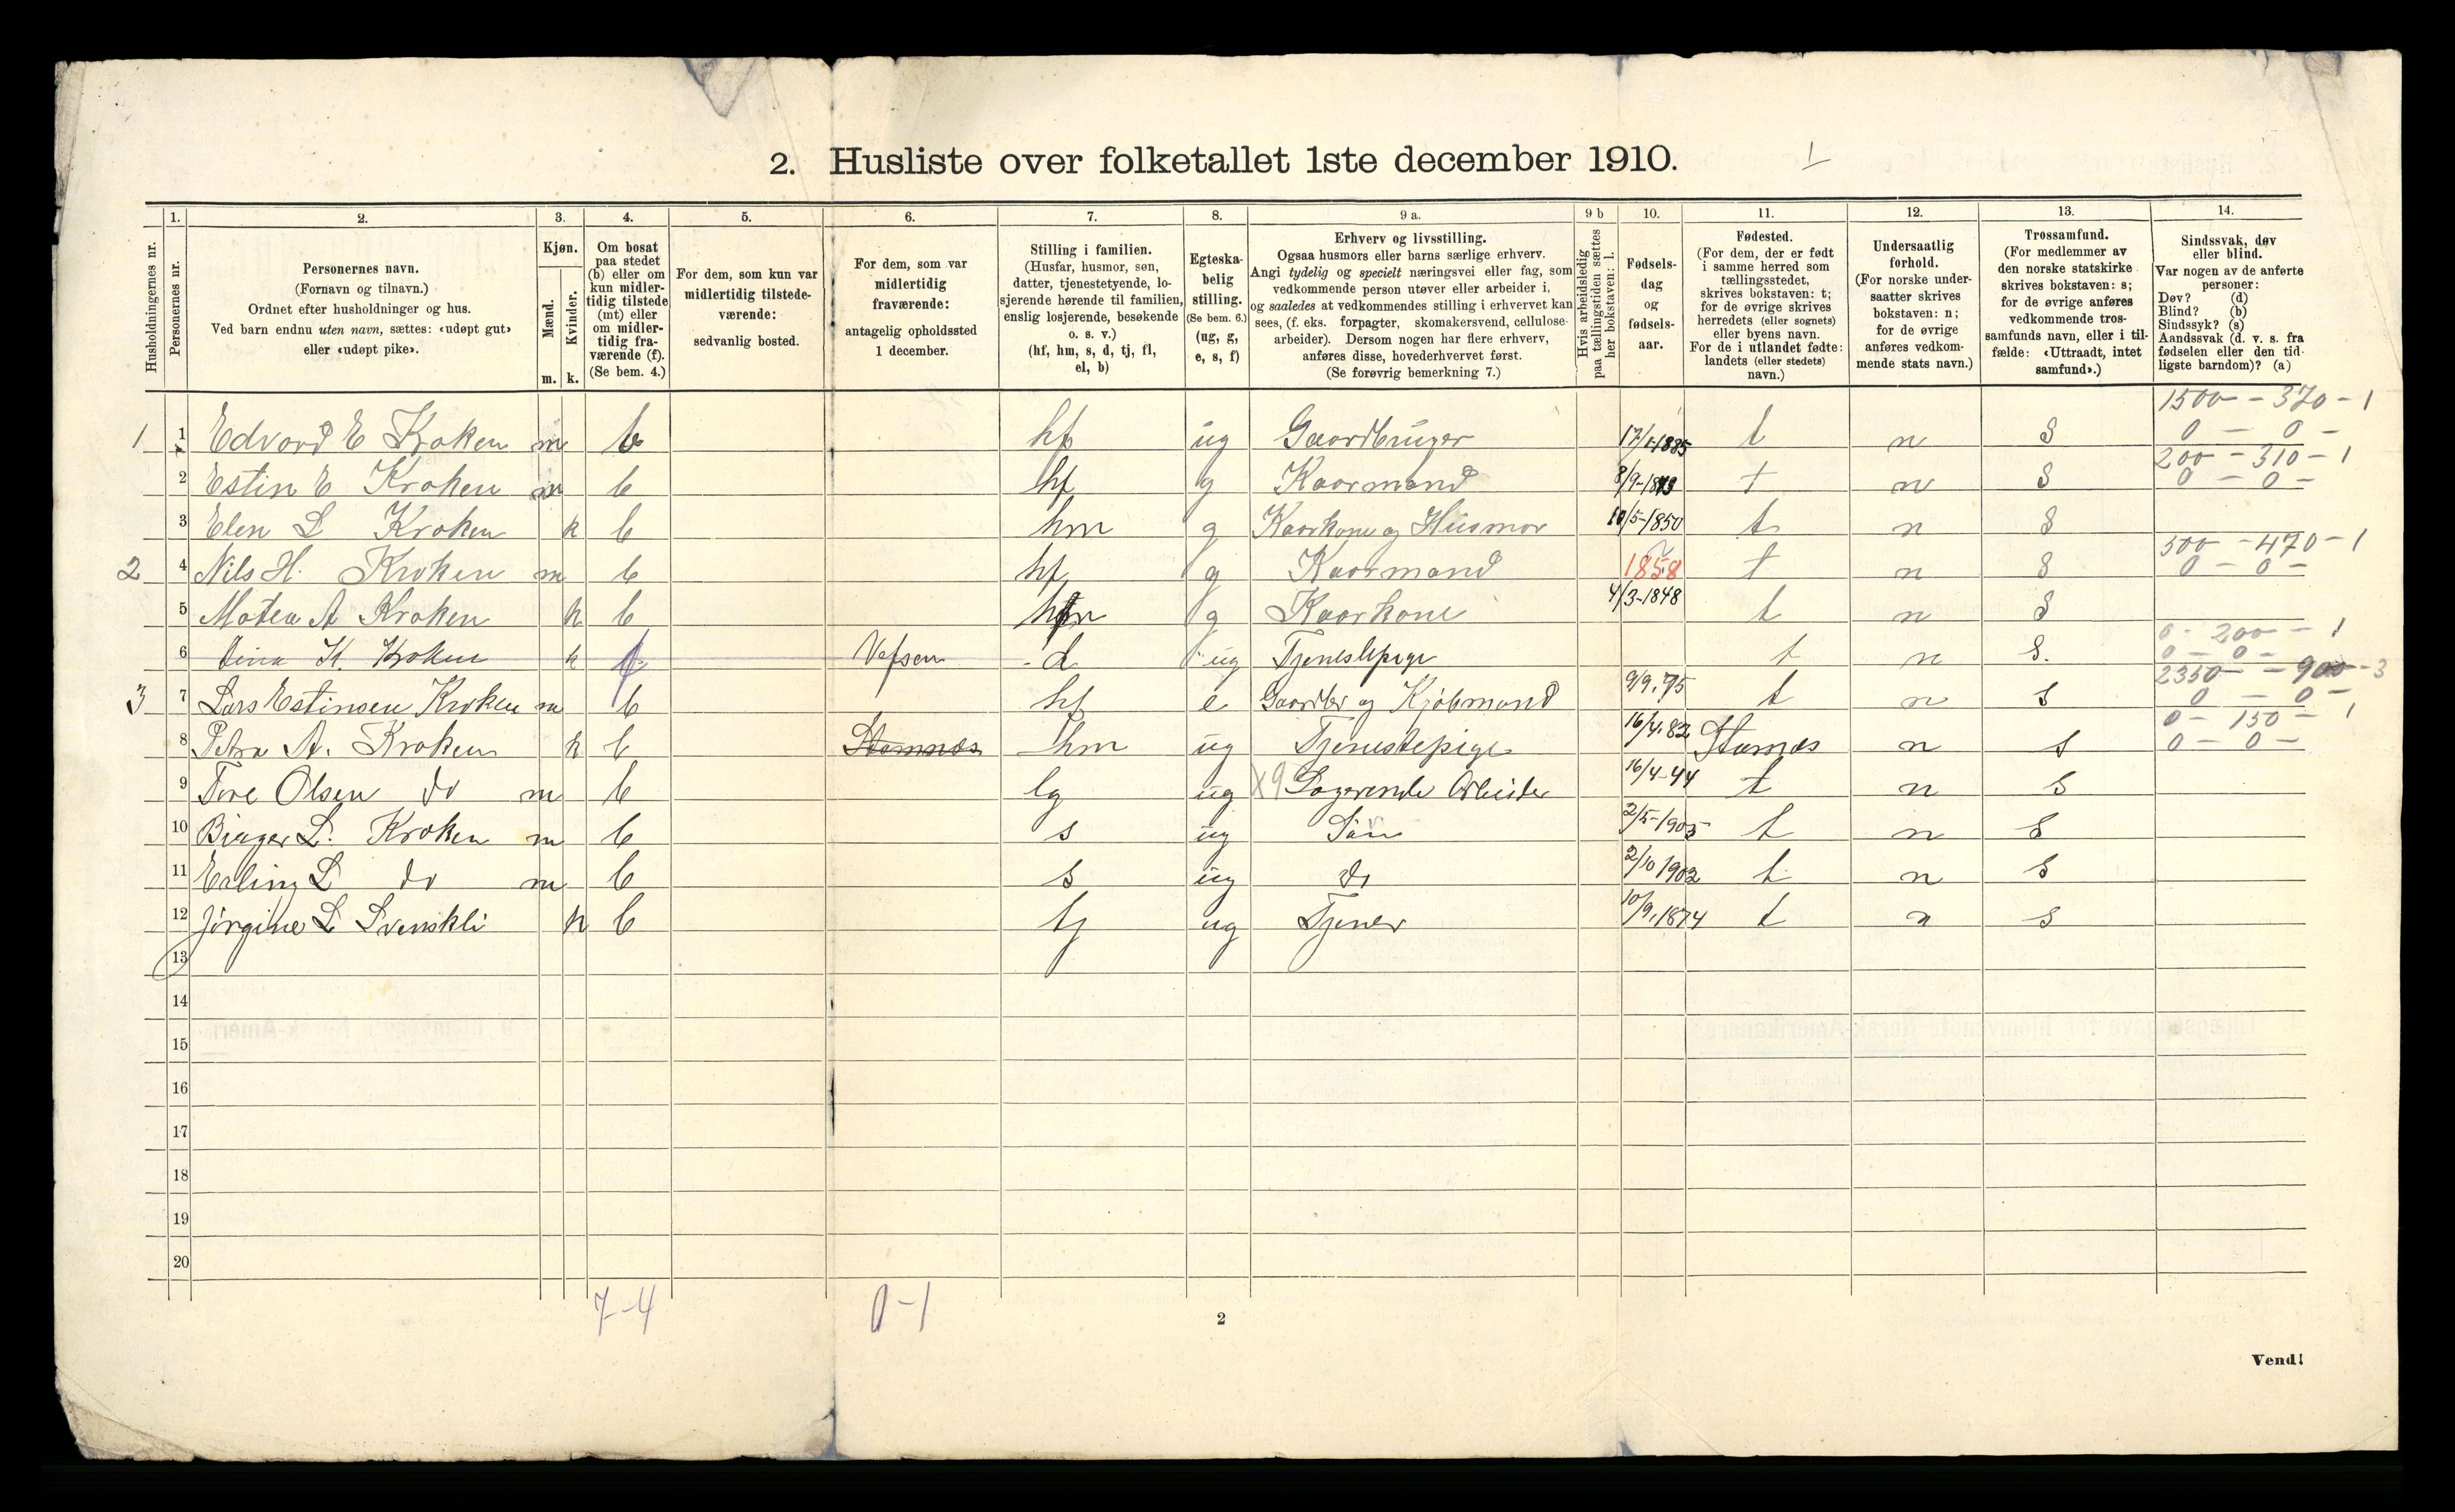 2. Husliste over folketallet 1ste december 1910.
1. 2. 3. 4. 5. 6. 7. 8. 9 a. 9 b 10. 11. 12. 13. 14.
Husholdningernes nr.
Personernes nr.
Personernes navn.
(Fornavn og tilnavn.)
Ordnet efter husholdninger og hus.
Ved barn endnu uten navn, sættes: «udøpt gut»
eller «udøpt pike».
Kjøn.
Mænd.
Kvinder.
m. k.
Om bosat
paa stedet
(b) eller om
kun midler-
tidig tilstede
(mt) eller
om midler-
tidig fra-
værende (f).
(Se bem. 4.)
For dem, som kun var
midlertidig tilstede-
værende:
sedvanlig bosted.
For dem, som var
midlertidig
fraværende:
antagelig opholdssted
1 december.
Stilling i familien.
(Husfar, husmor, søn,
datter, tjenestetyende, lo-
sjerende hørende til familien,
enslig losjerende, besøkende
o. s. v.)
(hf, hm, s, d, tj, fl,
el, b)
Egteska-
belig
stilling.
(Se bem. 6.)
(ug, g,
e, s, f)
Erhverv og livsstilling.
Ogsaa husmors eller barns særlige erhverv.
Angi tydelig og specielt næringsvei eller fag, som
vedkommende person utøver eller arbeider i,
og saaledes at vedkommendes stilling i erhvervet kan
sees, (f. eks. forpagter, skomakersvend, cellulose-
arbeider). Dersom nogen har flere erhverv,
anføres disse, hovederhvervet først.
(Se forøvrig bemerkning 7.)
Hvis arbeidsledig
paa tællingstiden sættes
her bokstaven: l.
Fødsels-
dag
og
fødsels-
aar.
Fødested.
(For dem, der er født
i samme herred som
tællingsstedet,
skrives bokstaven: t;
for de øvrige skrives
herredets (eller sognets)
eller byens navn.
For de i utlandet fødte:
landets (eller stedets)
navn.)
Undersaatlig
forhold.
(For norske under-
saatter skrives
bokstaven: n;
for de øvrige
anføres vedkom-
mende stats navn.)
Trossamfund.
(For medlemmer av
den norske statskirke
skrives bokstaven: s;
for de øvrige anføres
vedkommende tros-
samfunds navn, eller i til-
fælde: «Uttraadt, intet
samfund».)
Sindssvak, døv
eller blind.
Var nogen av de anførte
personer:
Døv? (d)
Blind? (b)
Sindssyk? (s)
Aandssvak (d. v. s. fra
fødselen eller den tid-
ligste barndom)? (a)
1500 - 370 - 1
1 1 Edvard E Kroken m b hf ug Gaardbruger 17/1-1885 t n S 0 - 0 -
200 - 310 - 1
2 Estin E Kroken m b hf g Kaarmand 8/9- t n S 0 - 0 -
3 Elen L Kroken k b hm g Kaarkone og Husmor 10/5-1850 t n S
500 - 470 - 1
2 4 Nils H. Kroken m b hf g Kaarmand 1858 t n S 0 - 0 -
5 Matea A Kroken k b hm g Kaarkone 4/3-1848 t n S
0 - 200 - 1
6 K. Kroken k f Vefsen d ug Tjenestepige t n S. 0 - 0 -
2350 - 900 - 3
3 7 Lars Estinsen Kroken m b hf e Gaardbr og Kjøbmand 9/9.75 t n S 0 - 0 -
0 - 150 - 1
8 Petra A. Kroken k b Stamnes hm ug Tjenestepige 16/4.82 Stamnes n s 0 - 0 -
9 Tore Olsen do m b lg ug X9 Logerende Arbeider 16/4-44 t n S
10 Birger L. Kroken m b s ug Søn 2/5-1905 t n S
11 Erling L do m b s ug do 2/10 1902 t n S
12 Jørgine L Svenskli k b tj ug Tjener 10/9.1874 t n s
13
14
15
16
17
18
19
20
7-4 0-1
2
Vend!